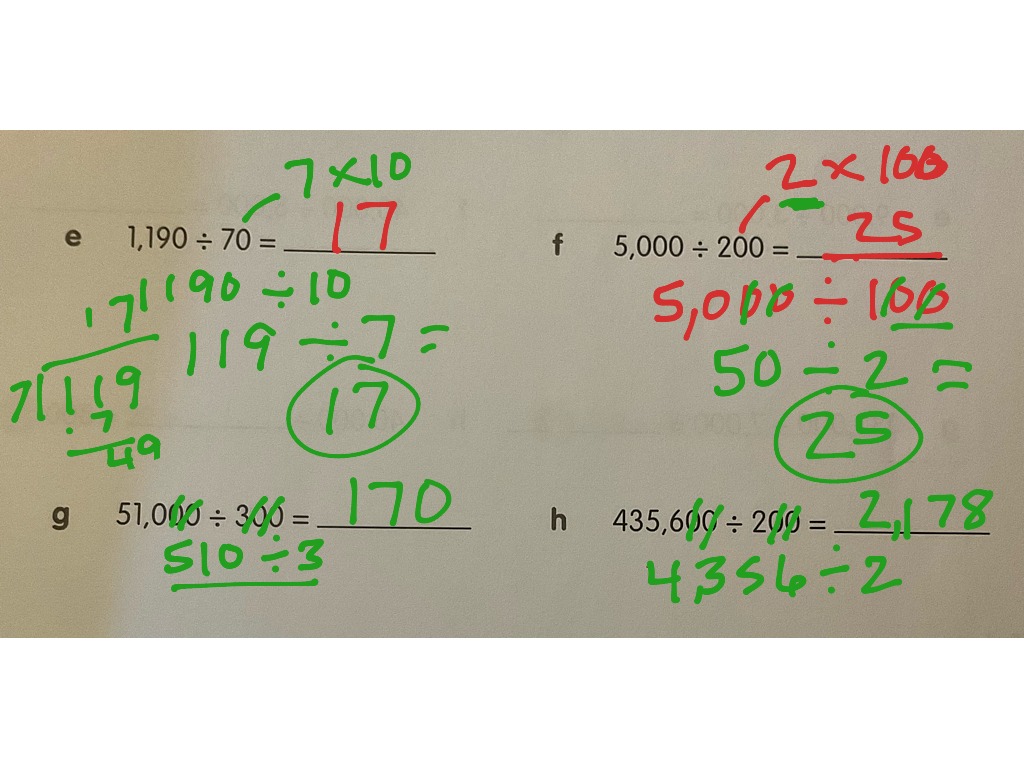 7 × 10
e 1,190 ÷ 70 = 17
1190 ÷ 10
119 ÷ 7 =
17
17
7 119
7
49
2 × 100
f 5,000 ÷ 200 = 25
5,000 ÷ 100
50 ÷ 2 =
25
g 51,000 ÷ 300 = 170
510 ÷ 3
h 435,600 ÷ 200 = 2,178
4,356 ÷ 2